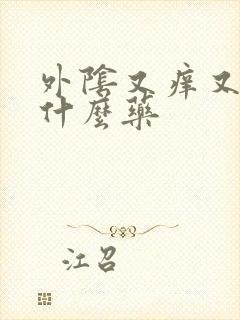 外陰又痒又
什麼藥
江召